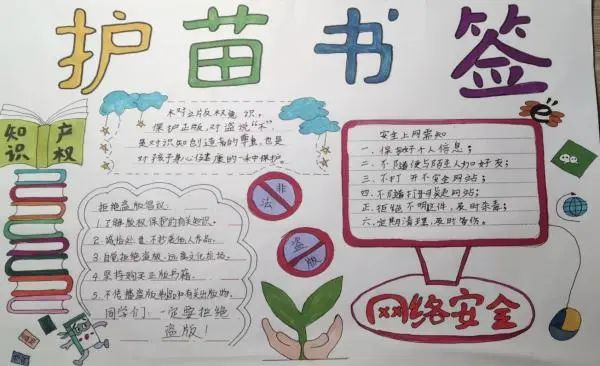 护苗书签
知识
产权
树立版权意识。
保护正版,对盗说“不”
是对识知创造者的尊重,也是
对孩子身心健康的一种保护。
非法
盗版
拒绝盗版倡议:
1.了解版权保护的有关知识。
3.自觉拒绝盗版,远离文化垃圾。
4.坚持购买正版书籍
5.不传播盗版制品和有关出版物。
同学们:一定要拒绝
盗版!
安全上网需知
一、保护好个人信息;
二、不随便与陌生人加好友;
三、不打开不安全网站;
四、不随打开网站;
五、拒绝不明邮件,及时杀毒;
六、定期清理,及时备份。
网络安全